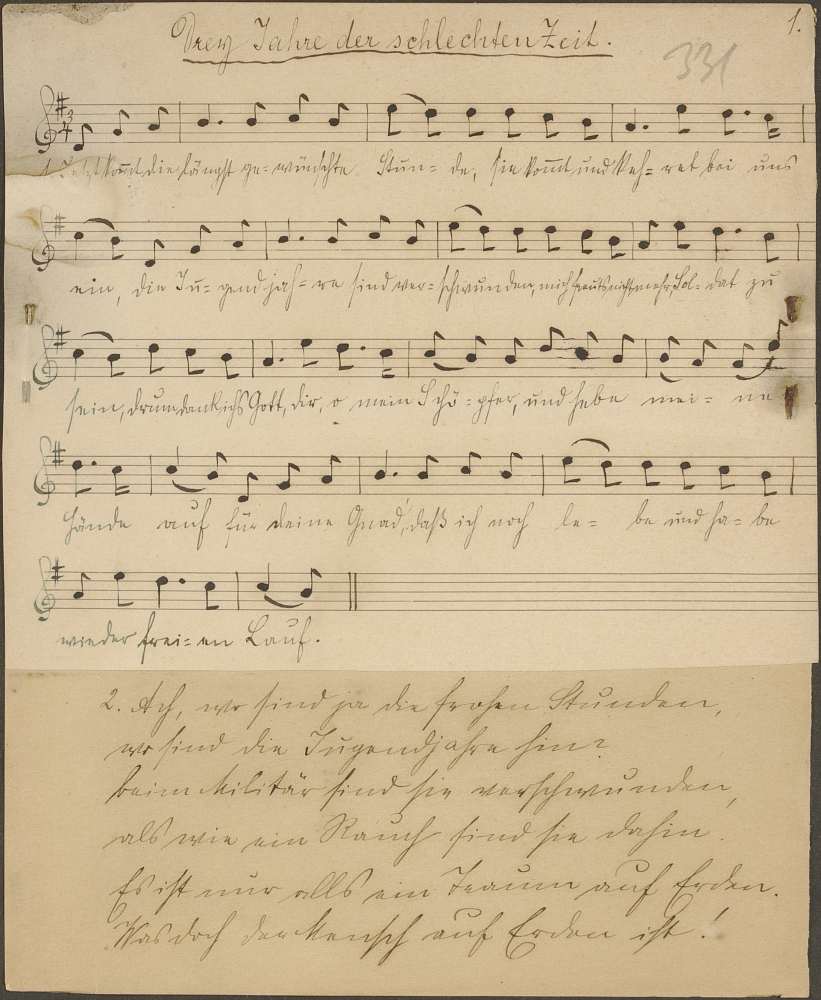 1.
Drey Jahre der schlechten Zeit.
331
1. Jetzt kommt die längst ge=wünschte Stun=de, sie kommt und keh=ret bei uns
ein, die Ju=gendjah=re sind ver=schwunden, mich freuts nicht mehr, Sol=dat zu
sein, drum dank ichs Gott, dir, o mein Schö=pfer, und hebe mei=ne
Hände auf für deine Gnad', daß ich noch le=be und ha=be
wieder frei=en Lauf.
2. Ach, wo sind ja die frohen Stunden,
wo sind die Jugendjahre hin?
beim Militär sind sie verschwunden,
als wie ein Rauch sind sie dahin.
Es ist nur alls ein Traum auf Erden.
Was doch der Mensch auf Erden ist!